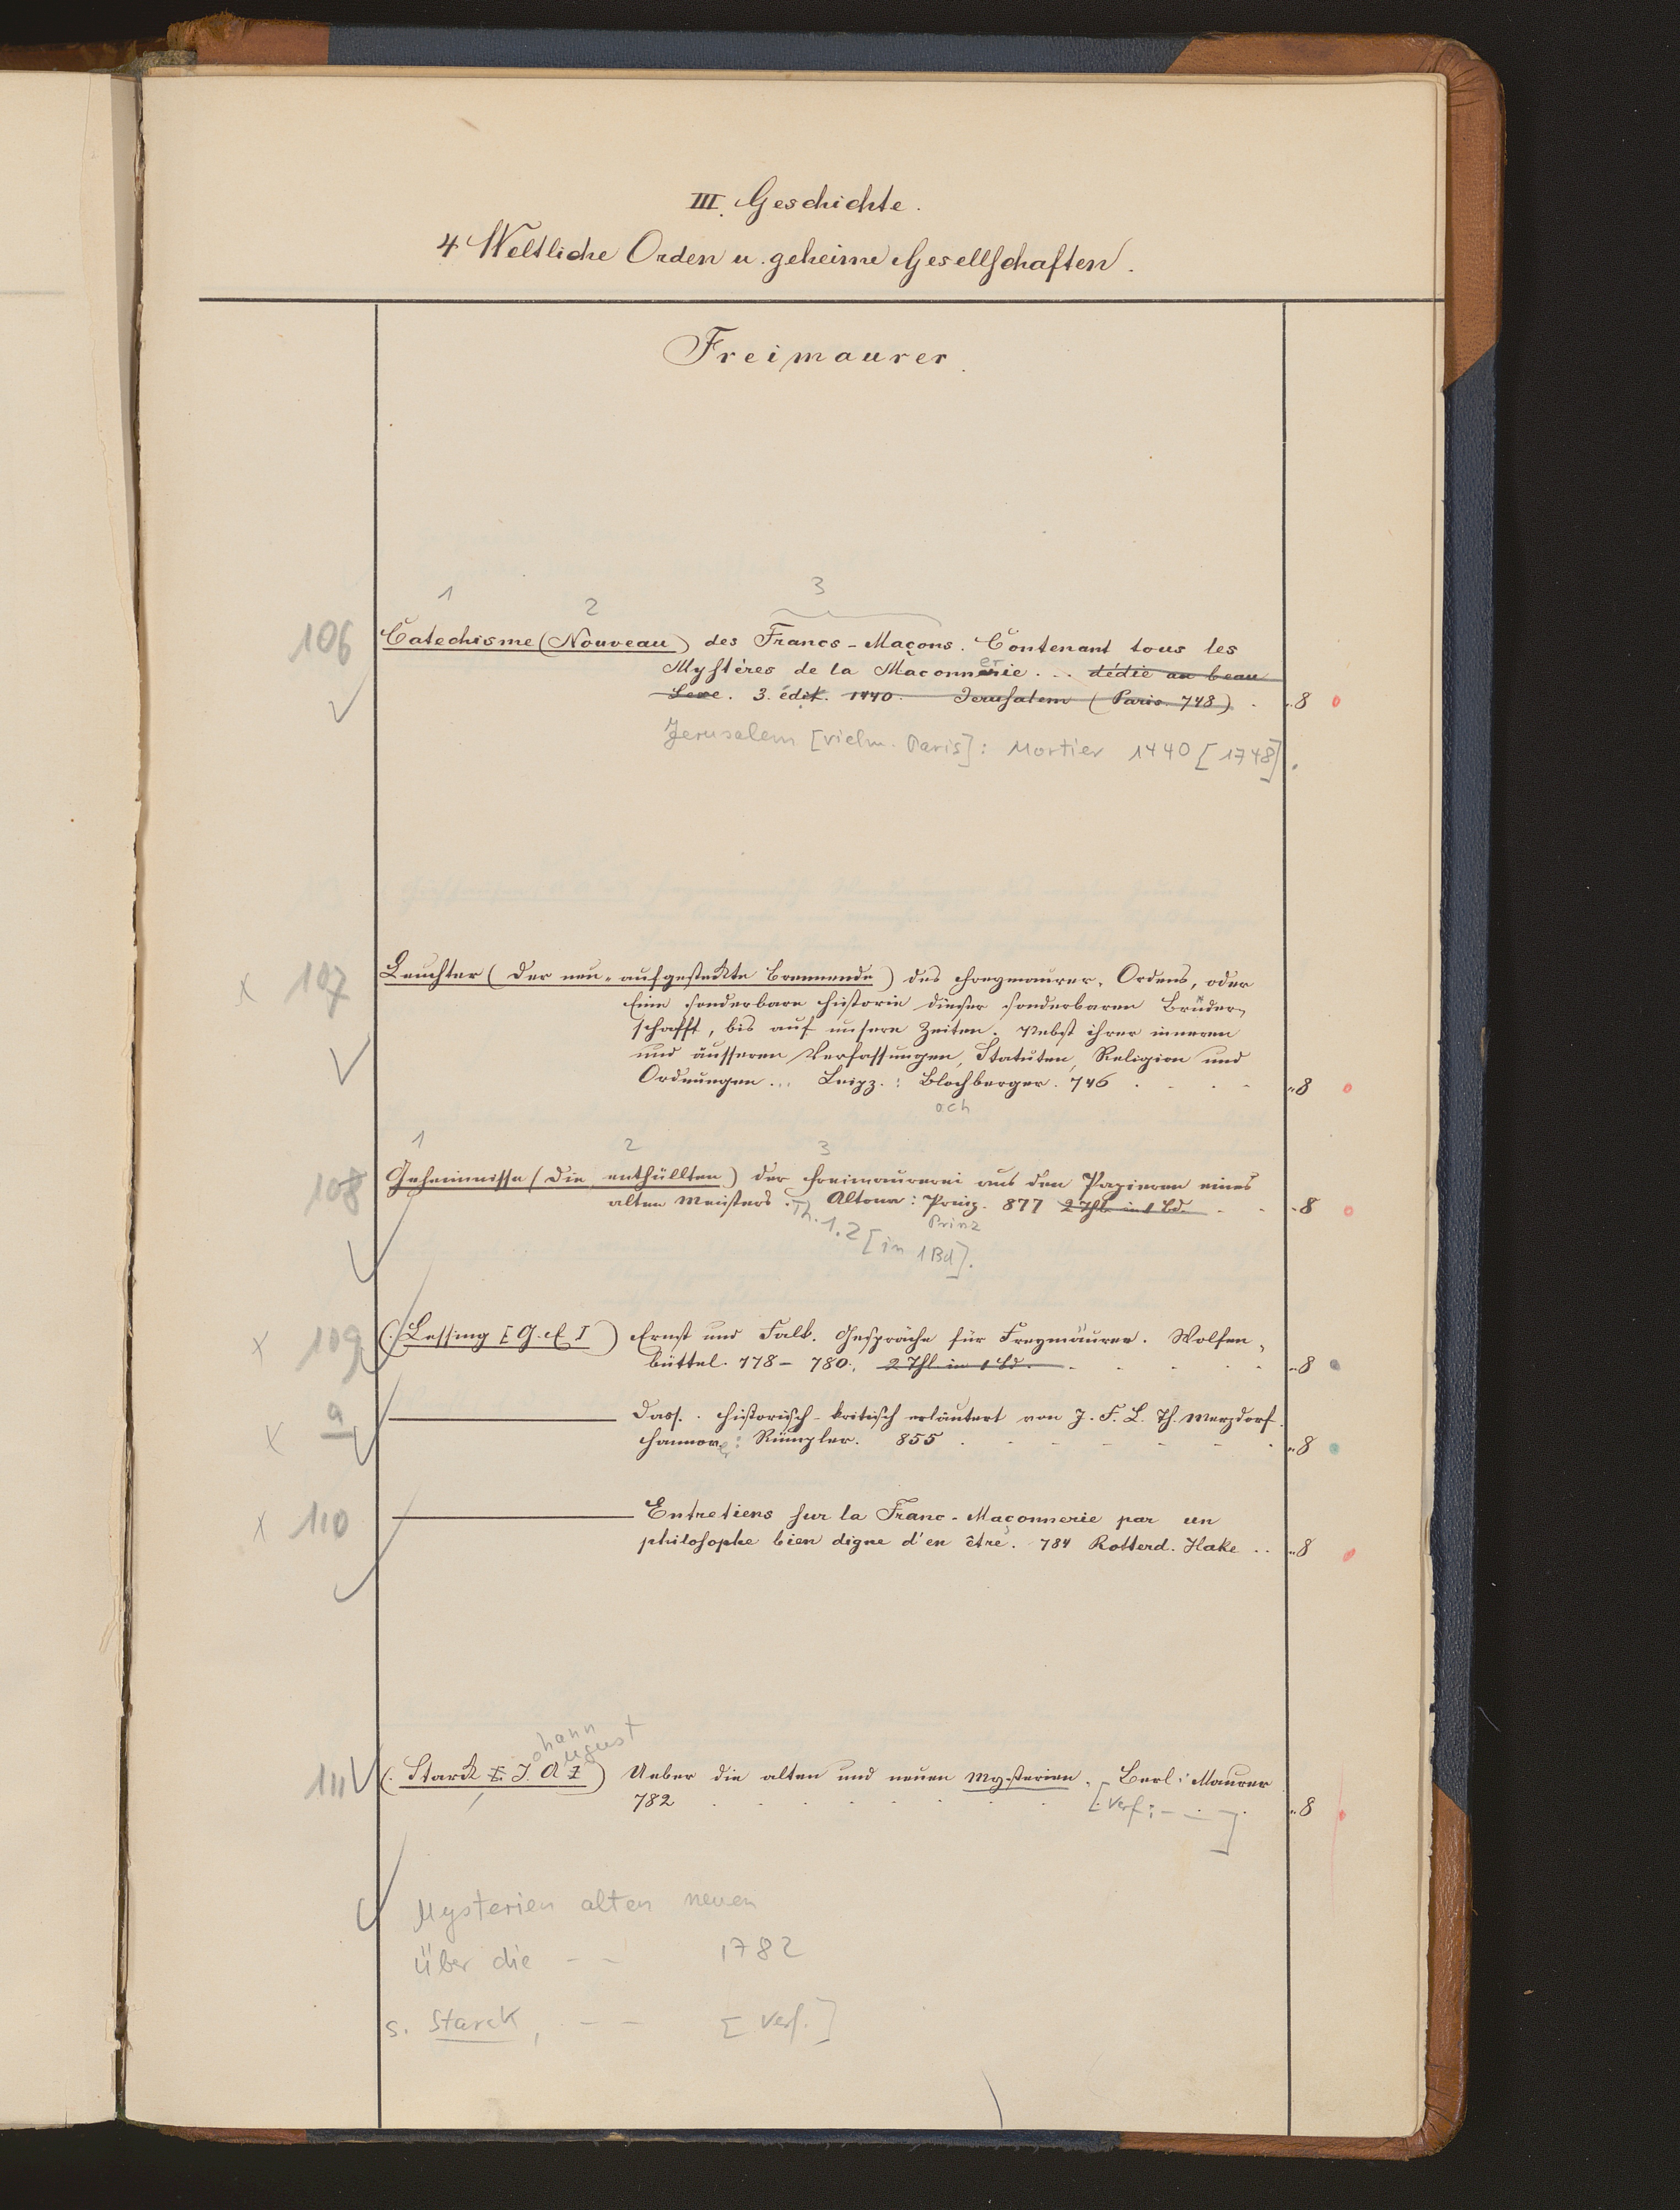 III. Geschichte.
4 Weltliche Orden u. geheime Gesellschaften.
Freimaurer.
1 2 3
106 Catechisme (Nouveau) des Francs-Maçons. Contenant tous les
Mystères de la Maçonnerie ... dédie au beau
Sexe. 3. édit. 1440. Jerusalem (Paris. 748) . „8
Jerusalem [vielm. Paris]: Mortier 1440 [1748].
x 107 Leuchter (Der neu-aufgesteckte Brennende) des Freymaurer-Ordens, oder
Eine sonderbare Historie dieser sonderbaren Brüder-
schafft, bis auf unsere Zeiten. Nebst ihrer inneren
und äusseren Verfassungen, Statuten, Religion und
Ordnungen... Leipz.: Blochberger. 746 . . . . „8
och
1 2 3
108 Geheimnisse (Die enthüllten) der Freimaurerei aus den Papieren eines
alten Meisters. Altona: Prinz. 877 2 Thl. in 1 Bd. . . „8
Th. 1.2 [in 1 Bd]. Prinz
x 109 (Lessing [G. E.]) Ernst und Falk. Gespräche für Freymäurer. Wolfen-
büttel. 778–780., 2 Thl. in 1 Bd. . . . . . „8
x a ——— Dass. Historisch-kritisch erläutert von J. F. L. Th. Merzdorf.
Hannover: Rümpler. 855 . . . . . . . „8
x 110 ——— Entretiens sur la Franc-Maçonnerie par un
philosophe bien digne d'en être. 784 Rotterd. Hake .. „8
ohann
ugust
111 (Starck [J. A.]) Ueber die alten und neuen Mysterien. Berl: Maurer
782 . . . . . . . . [Verf: – . –] „8
Mysterien alten neuen
über die – – 1782
s. Starck, – – [Verf.]